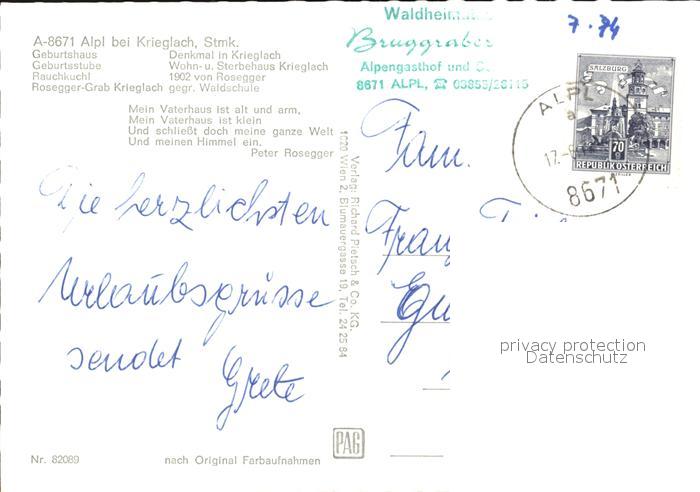 A-8671 Alpl bei Krieglach, Stmk.
Geburtshaus Denkmal in Krieglach
Geburtsstube Wohn- u. Sterbehaus Krieglach
Rauchkuchl 1902 von Rosegger
Rosegger-Grab Krieglach gegr. Waldschule
Mein Vaterhaus ist alt und arm,
Mein Vaterhaus ist klein
Und schließt doch meine ganze Welt
Und meinen Himmel ein.
Peter Rosegger
Die herzlichsten
Urlaubsgrüsse
sendet
Grete
Nr. 82089
nach Original Farbaufnahmen
Verlag: Richard Pietsch & Co. KG.
1020 Wien 2, Blumauergasse 19, Tel. 24 25 84
PAG
Bruggraber
Alpengasthof und
8671 ALPL, ☎ 03855/28115
7.74
SALZBURG
70
REPUBLIK ÖSTERREICH
ALPL
a
8671
Fam.
privacy protection
Datenschutz